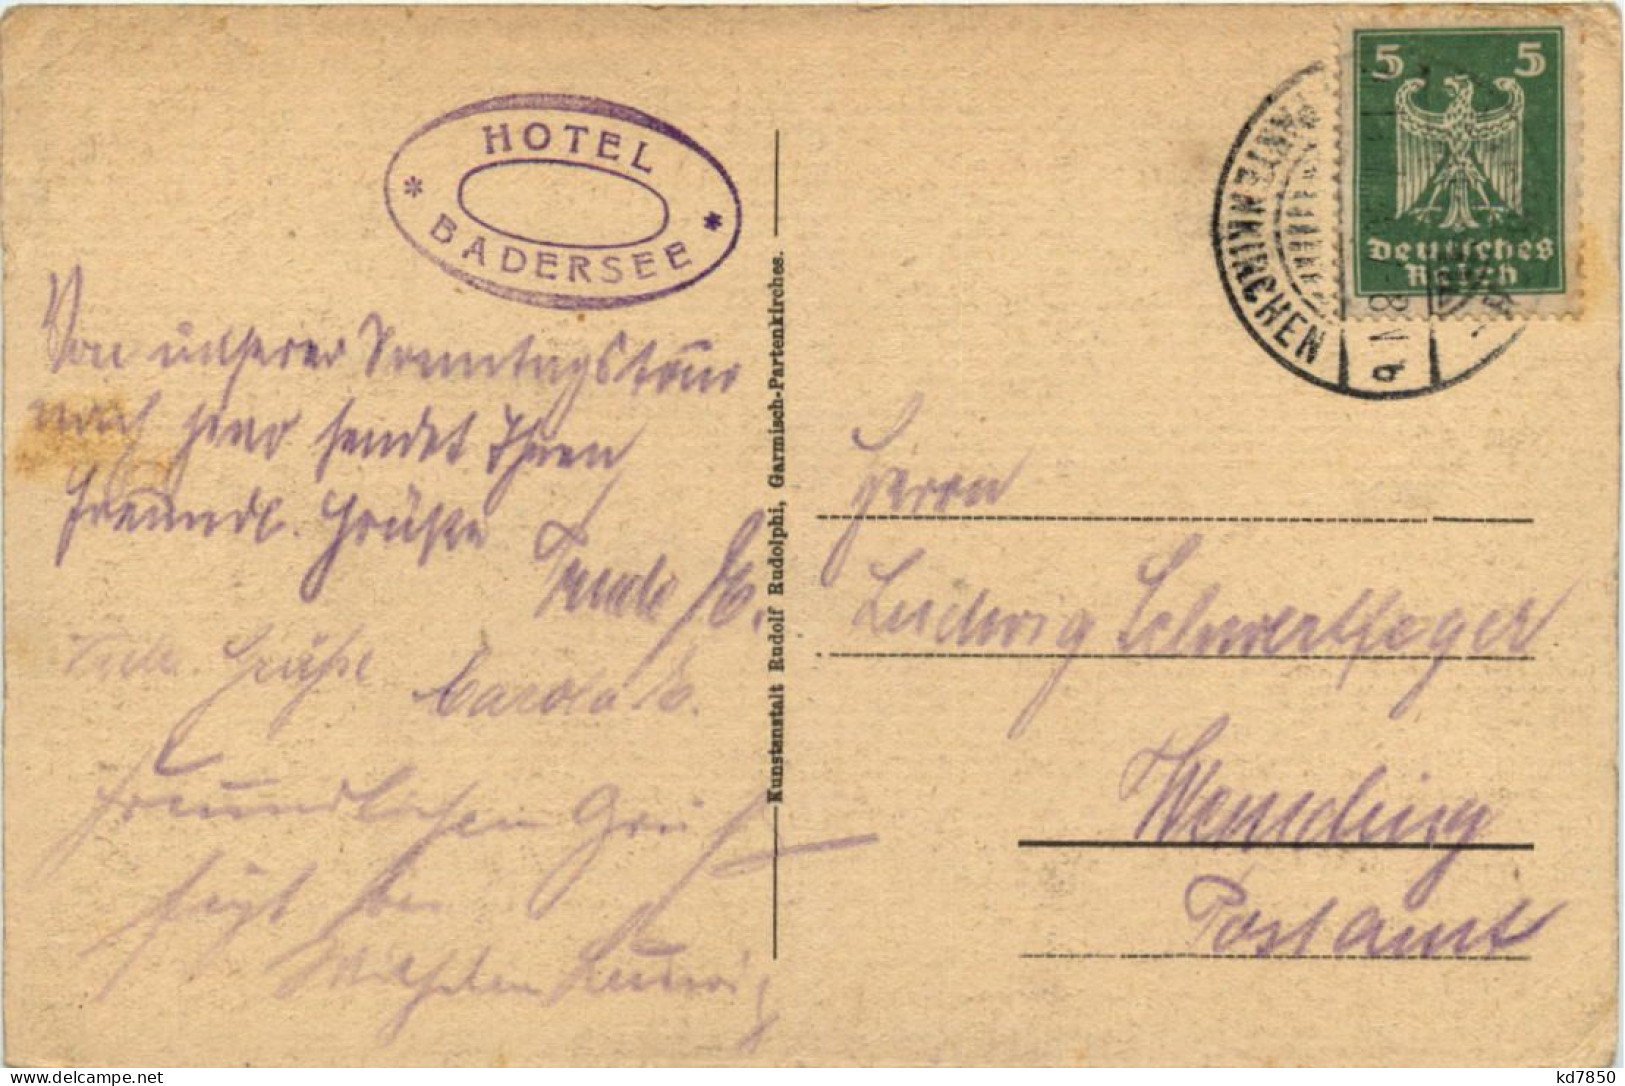 HOTEL
* BADERSEE *
Von unserer Sonntagstour
nach hier sendet Ihnen
freundl. Grüße Trude E.
Viele Grüße Carola E.
Freundlichen Gruß
fügt bei
Kunstanstalt Rudolf Rudolphi, Garmisch-Partenkirchen.
5 5
Deutsches
Reich
PARTENKIRCHEN
Herrn
Ludwig Schwertfeger
Wemding
Postamt
kd7850